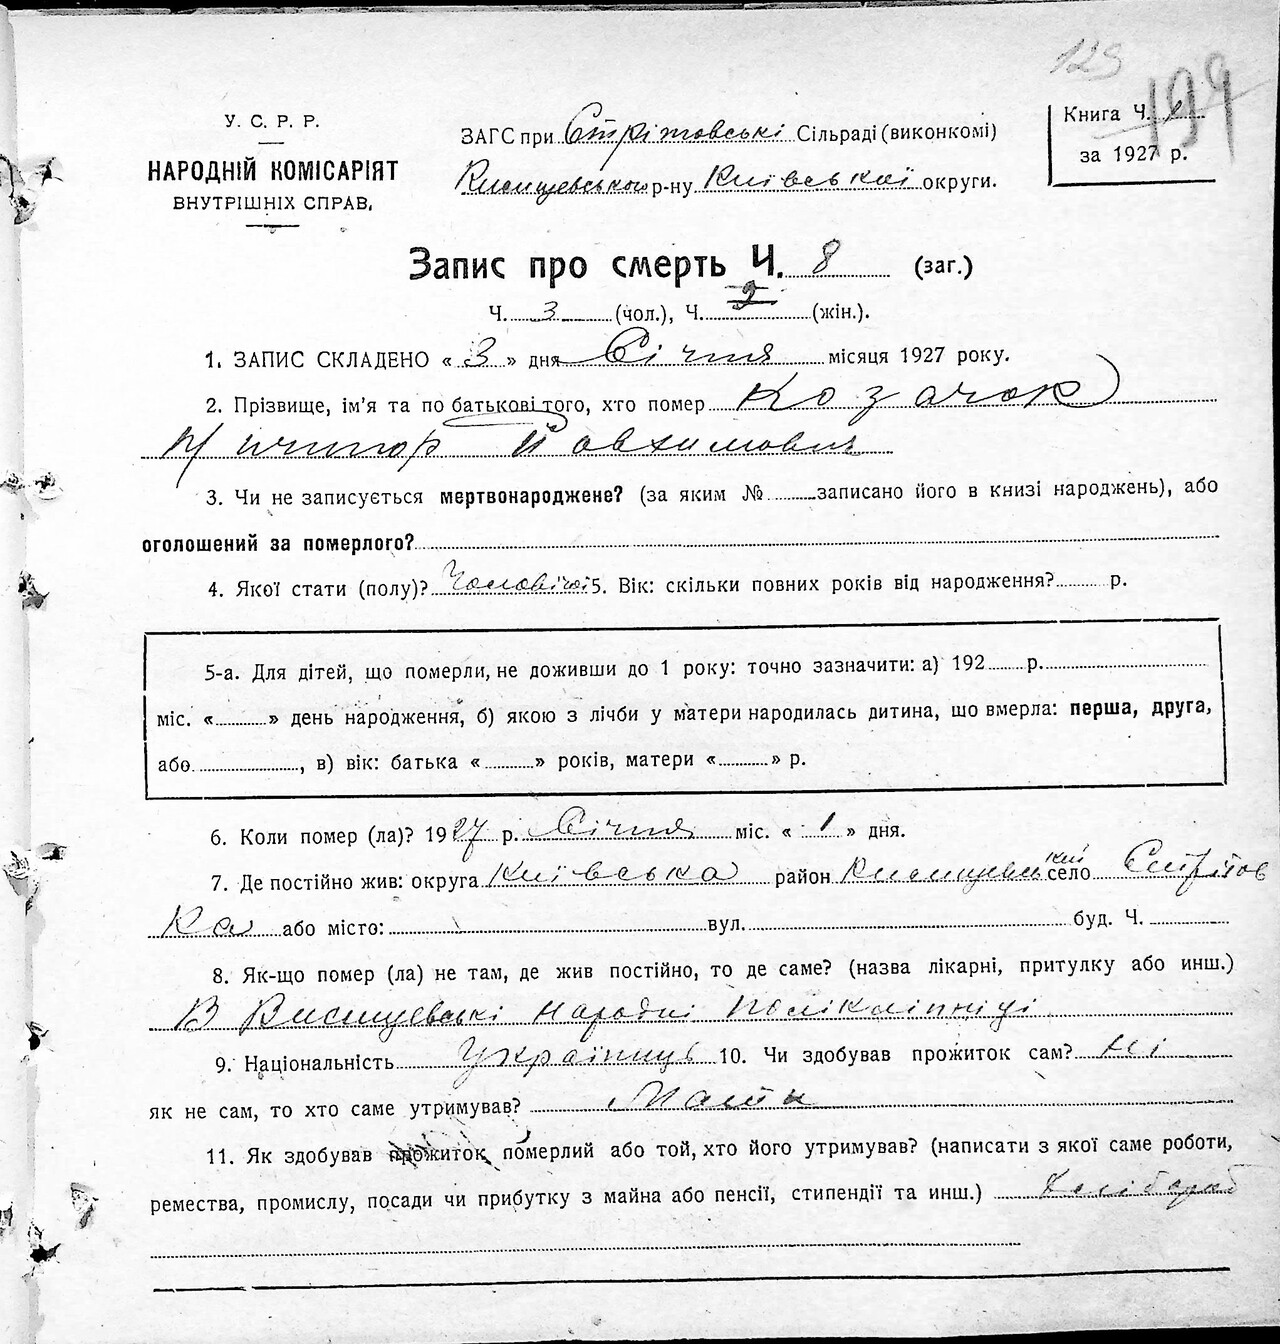 129
199
У. С. Р. Р.
НАРОДНІЙ КОМІСАРІЯТ
ВНУТРІШНІХ СПРАВ.
ЗАГС при Стрітовські Сільраді (виконкомі)
р-ну Київської округи.
Книга Ч. 1
за 1927 р.
Запис про смерть Ч. 8 (заг.)
Ч. 3 (чол.), Ч. (жін.).
1. ЗАПИС СКЛАДЕНО « 3 » дня Січня місяця 1927 року.
2. Прізвище, ім'я та по батькові того, хто помер Козачок
Йовхимович
3. Чи не записується мертвонароджене? (за яким № записано його в книзі народжень), або
оголошений за померлого?
4. Якої стати (полу)? Чоловічої 5. Вік: скільки повних років від народження? р.
5-а. Для дітей, що померли, не доживши до 1 року: точно зазначити: а) 192 р.
міс. « » день народження, б) якою з лічби у матери народилась дитина, що вмерла: перша, друга,
або , в) вік: батька « » років, матери « » р.
6. Коли помер (ла)? 1927 р. Січня міс. « 1 » дня.
7. Де постійно жив: округа Київська район село Стрітов
ка або місто: вул. буд. Ч.
8. Як-що помер (ла) не там, де жив постійно, то де саме? (назва лікарні, притулку або инш.)
В народні поліклініці
9. Національність Українець 10. Чи здобував прожиток сам? Ні
як не сам, то хто саме утримував? Мати
11. Як здобував прожиток померлий або той, хто його утримував? (написати з якої саме роботи,
ремества, промислу, посади чи прибутку з майна або пенсії, стипендії та инш.) Хлібороб